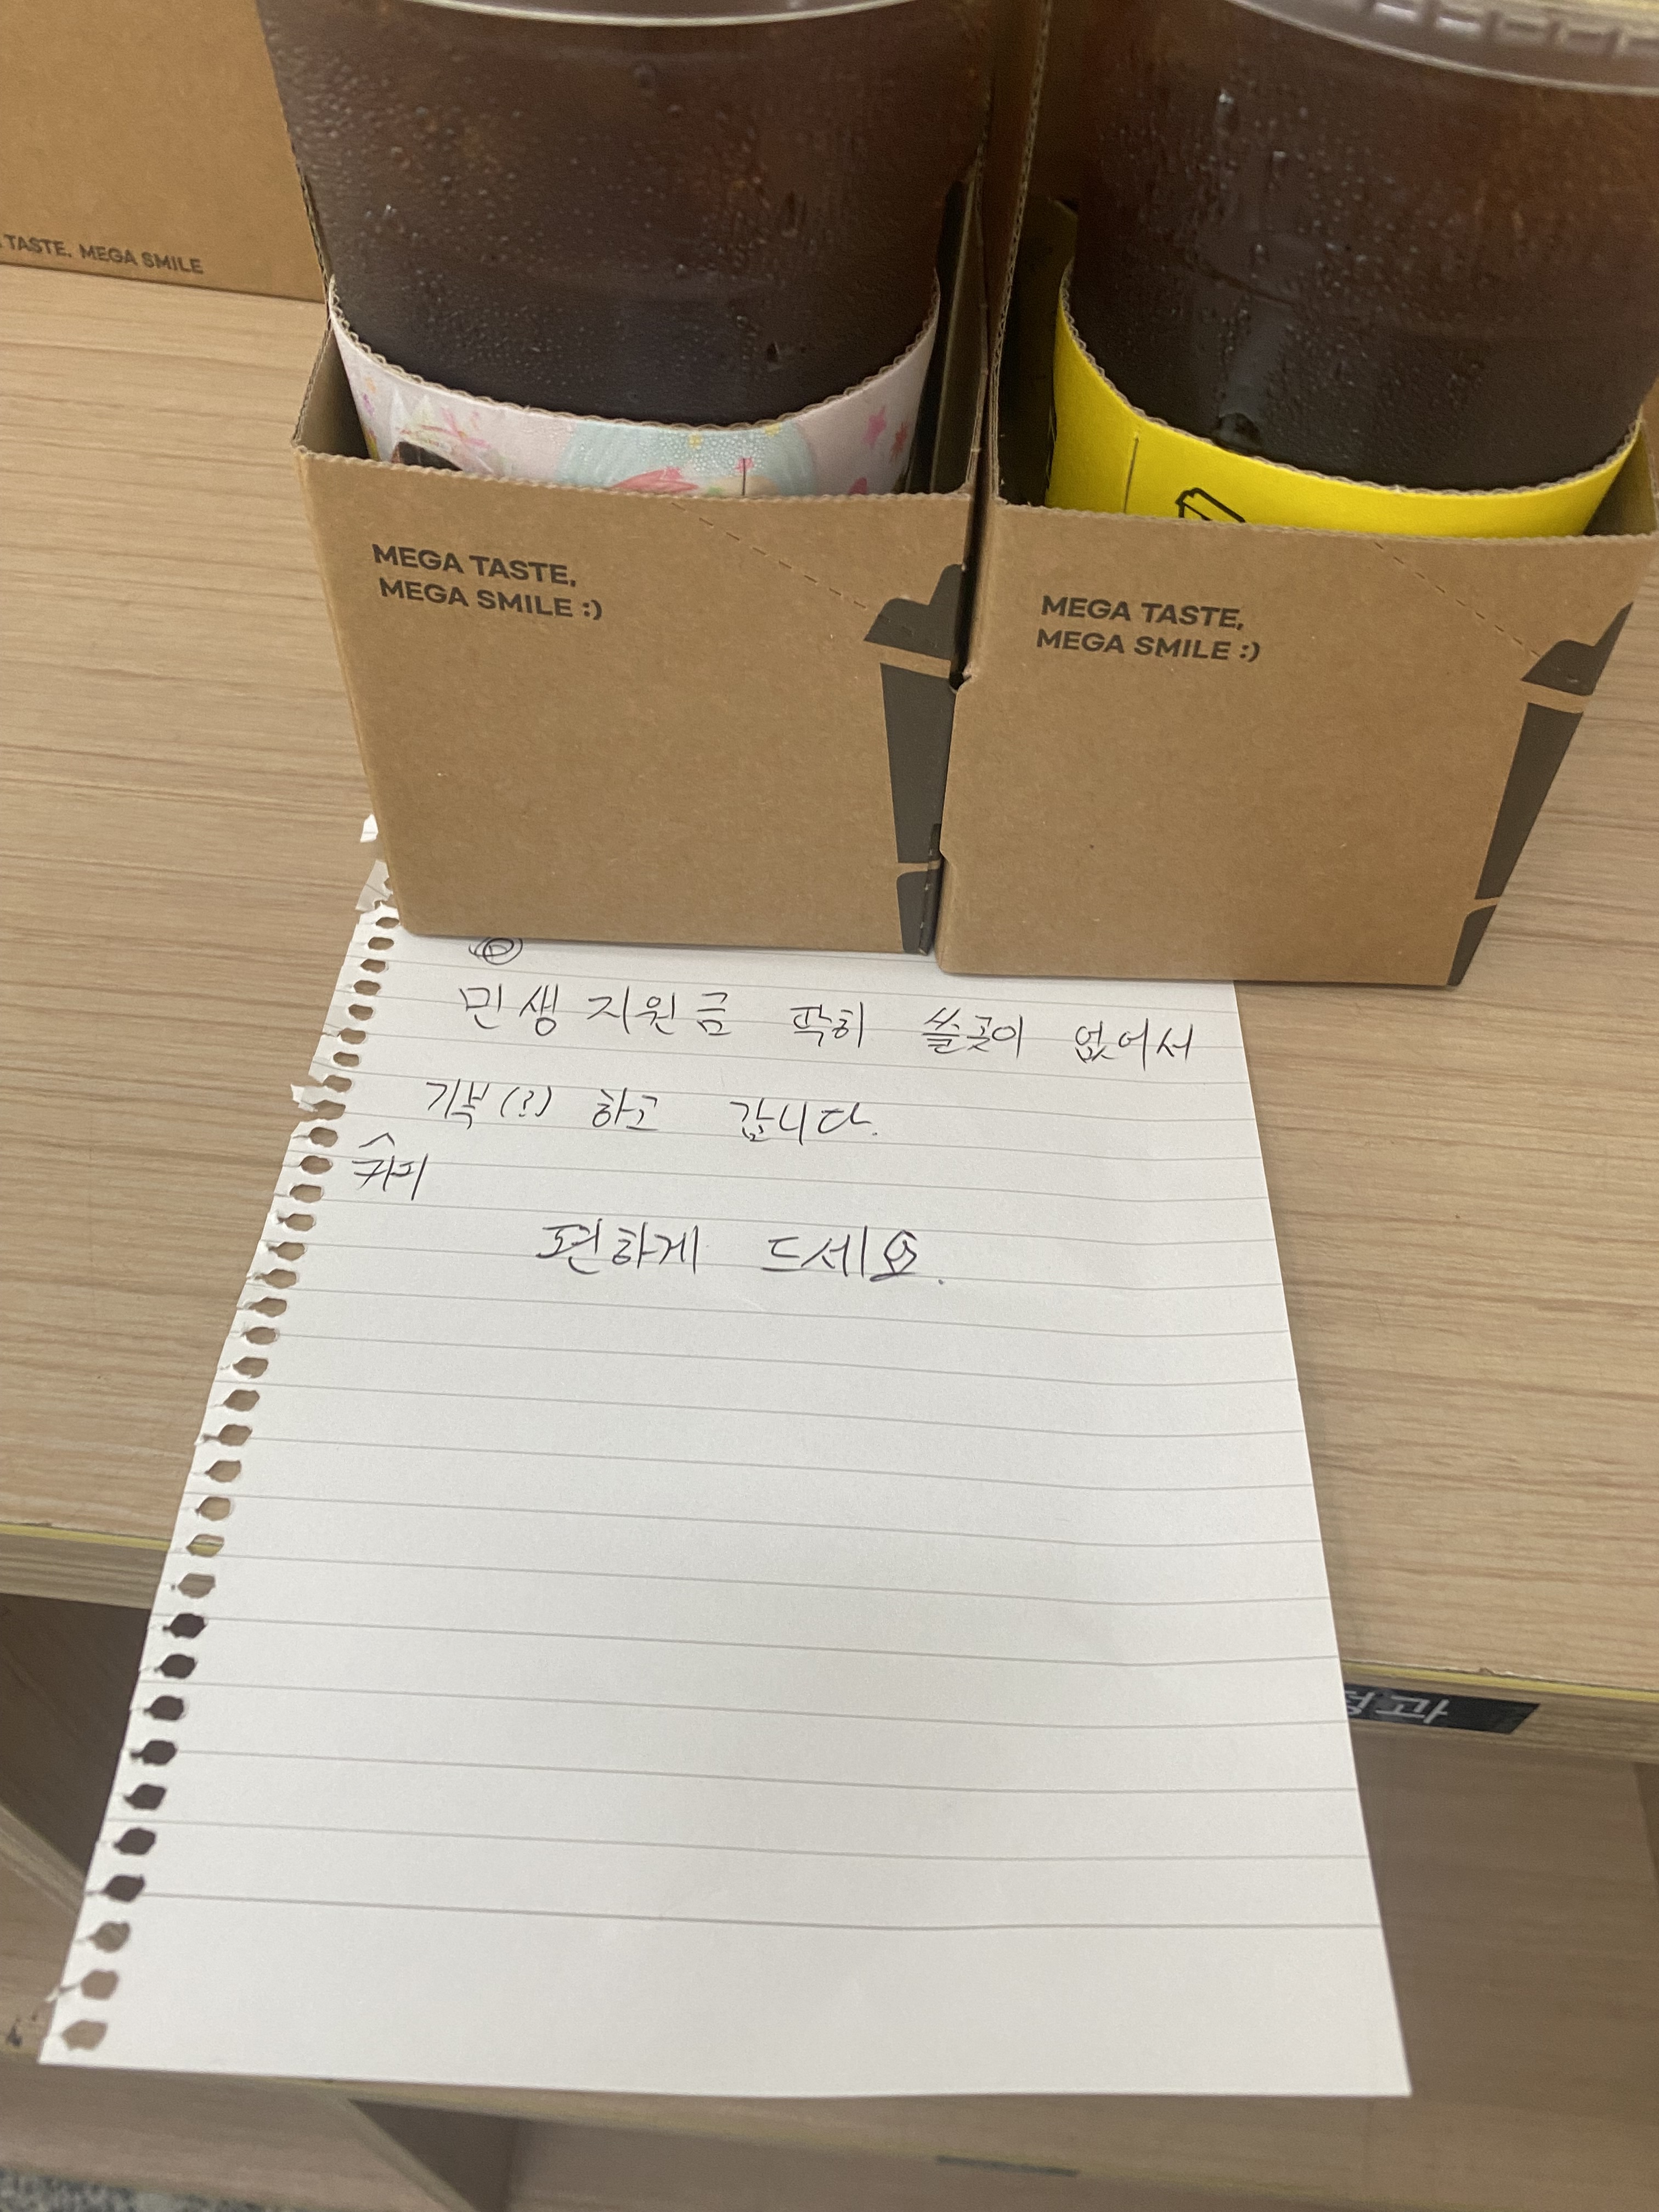 TASTE, MEGA SMILE
MEGA TASTE,
MEGA SMILE :)
MEGA TASTE,
MEGA SMILE :)
민생지원금 딱히 쓸곳이 없어서
기부(?) 하고 갑니다.
커피
편하게 드세요.